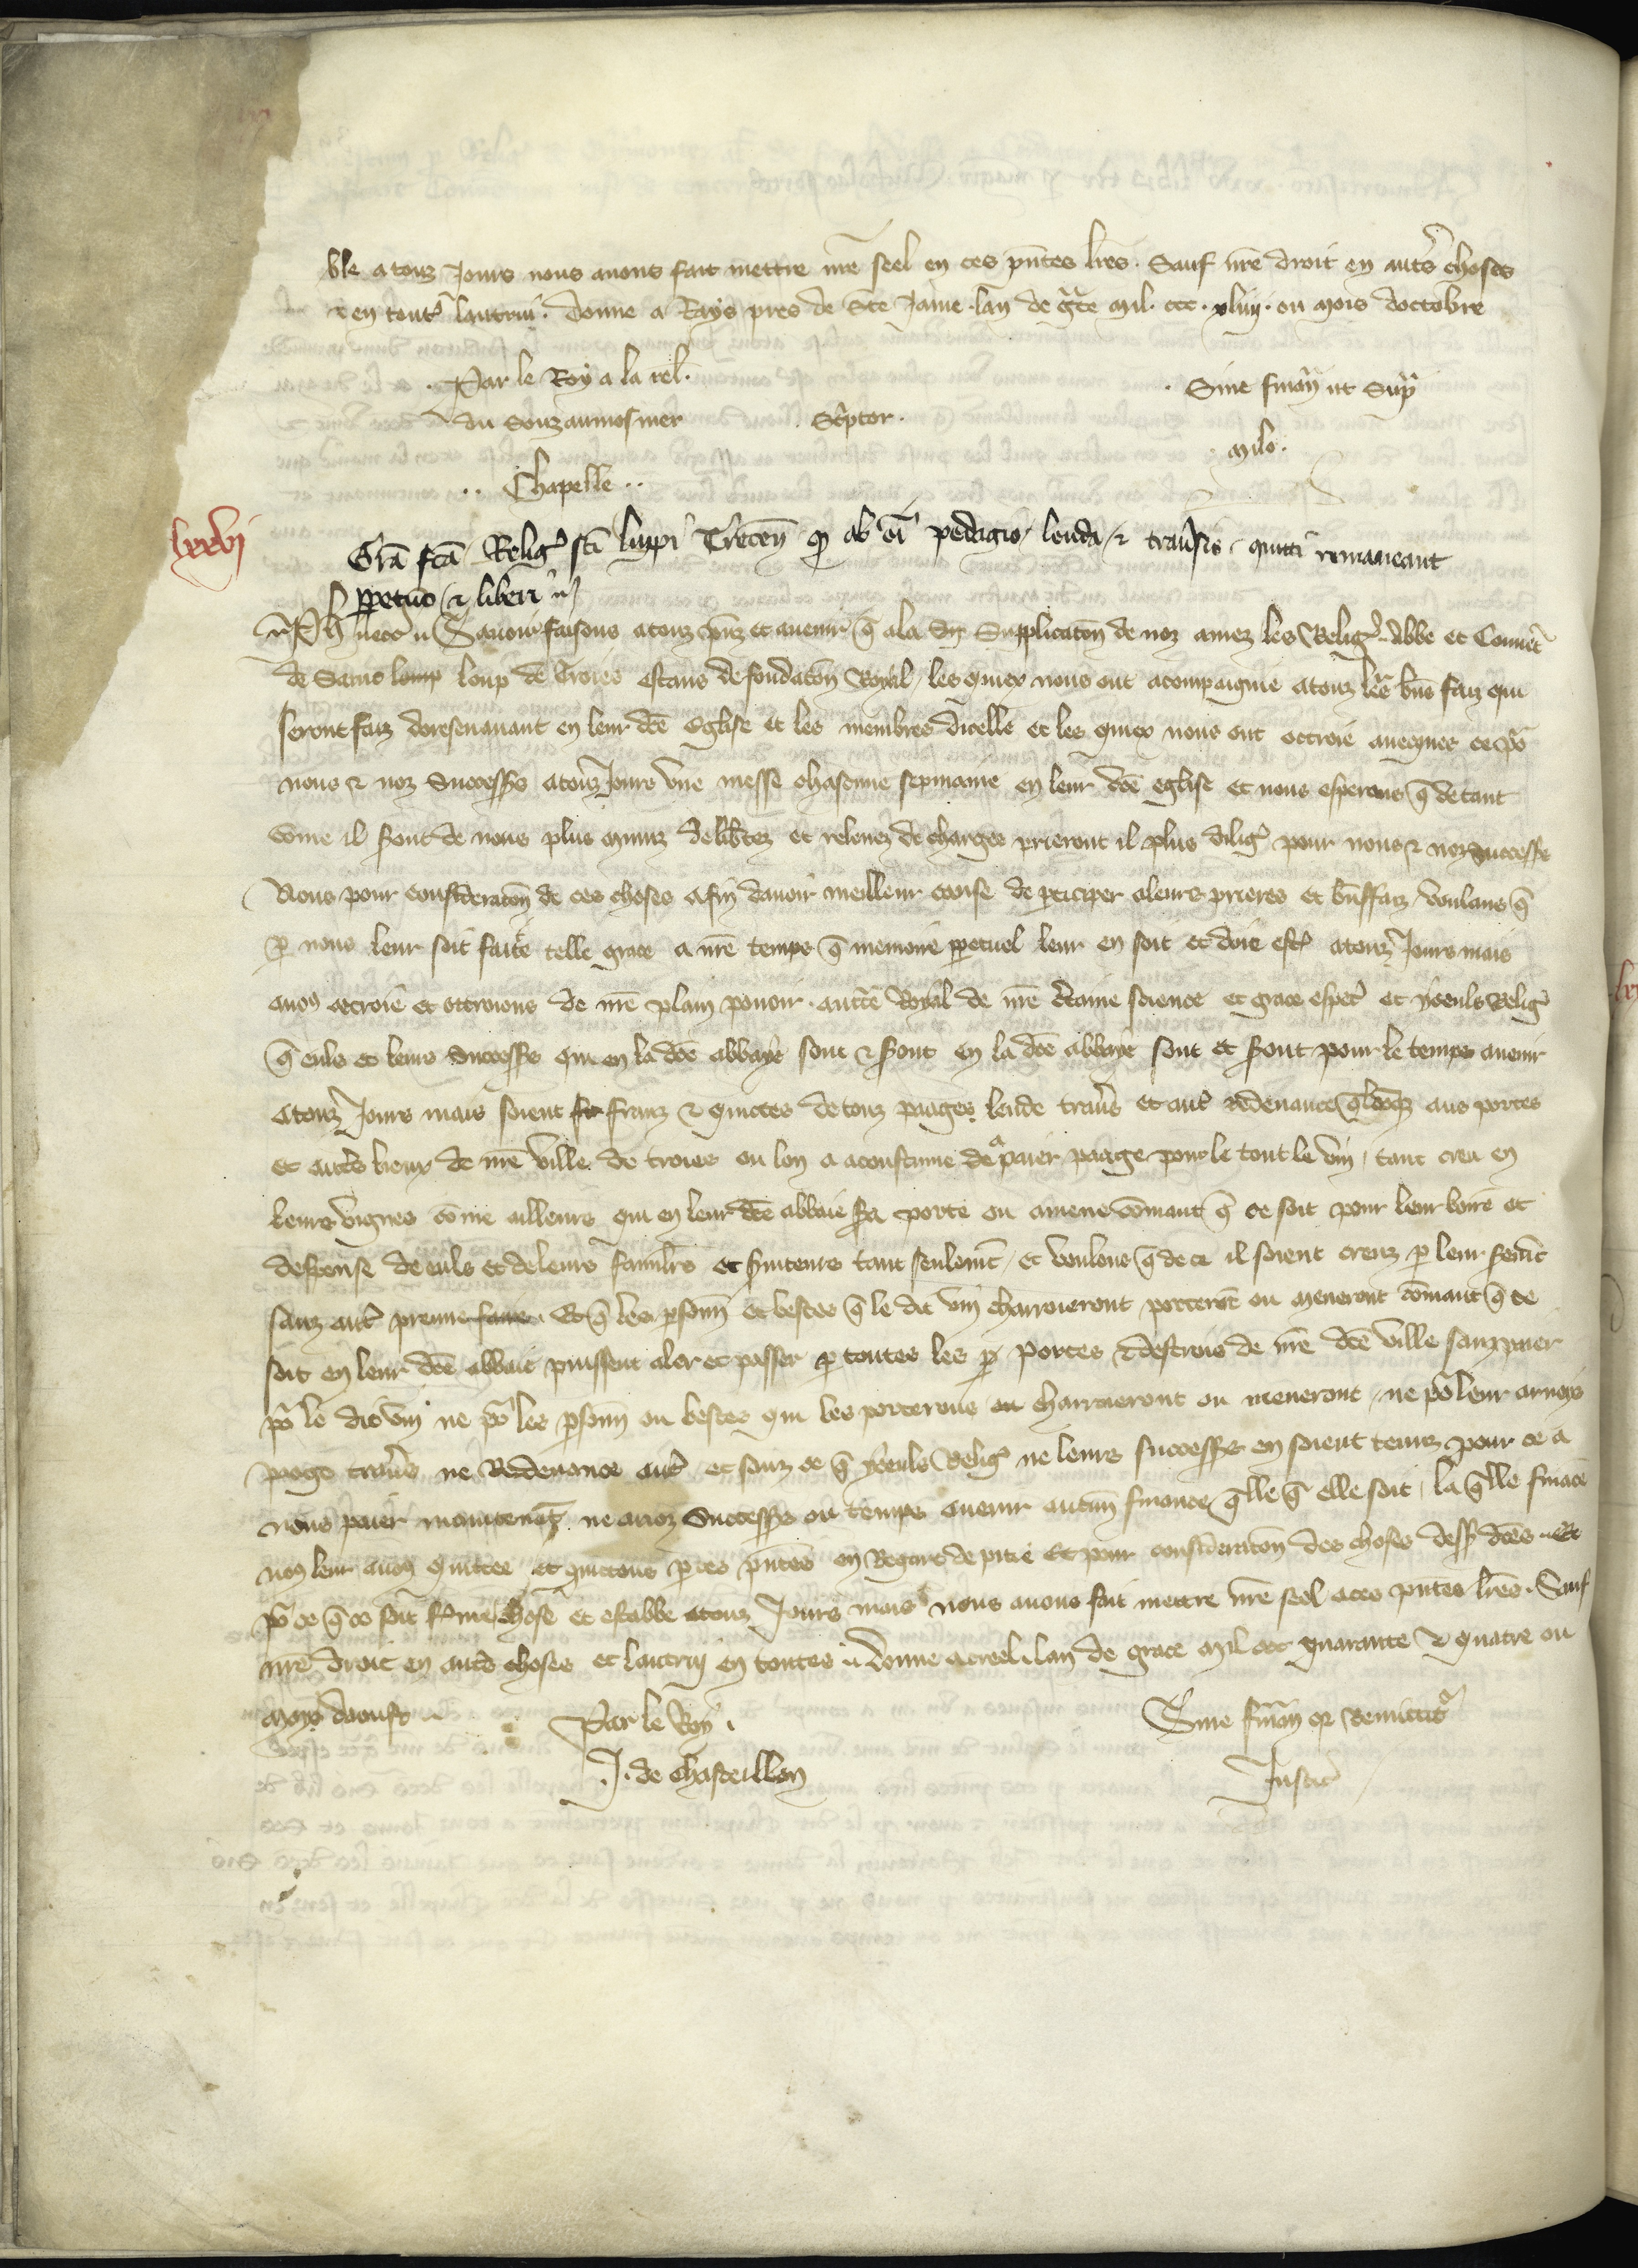 ble a touz jours nous avons fait mettre nre seel en ces pntes lres. Sauf nre droit en autres choses
et en toutes lautrui. Donne a Rays pres de Ste Jame lan de grce mil. ccc. xliiij. ou mois doctobre
Par le Roy a la rel.
du Souzaumosnier
Scriptor.
Sine finan ut Supra
Milo.
Chapelle
lxxvj
Gra fca Relig sti luppi Trecen qr ab oi pedagio leuda et travers quitti remaneant
ppetuo et liberi
Ph etc Savoir faisons a touz pnz et avenir q a la Supplicaton de noz amez les Relig Abbe et Couvet
de Saint loup de Troies estans de fondaton Royal, les quiex nous ont acompaignie a touz les bns faiz qui
seront faiz doresenavant en leur dce Eglise et les membres dicelle et les quiex nous ont ottroie avecques ce por
nous et noz Successrs a touz jours une messe chascune sepmaine en leur dce eglise et nous esperons q de tant
come il sront de nous plus muniz de libtez et relevez de charges prieront il plus dilig pour nous et noz successrs
Nous pour consideraton de ces choses afin davoir meilleur cause de pticiper a leurs prieres et bnffaiz, voulans q
p nous leur soit faite telle grace a nre temps q memoire ppetuel leur en soit et doie estre a touz jours mais
avons ottroie et ottroions de nre plain povoir auctte Royal de nre ctaine science et grace espel et yceuls Relig
q euls et leurs successrs qui en la dce abbaye sont et sront en la dce abbaye sont et sront pour le temps avenir
a touz jours mais soient franz et quictes de touz paages leude travers et autre redevance qlcoqz aus portes
et autres lieux de nre ville de troies ou lon a acoustume de paier paage pour le tout le vin, tant creu en
leurs vignes come ailleurs qui en leur dce abbaie sra porte ou amene comant q ce soit pour leur boire et
despense de euls et de leurs familrs et sviteurs tant seulemt, et voulons q de ce il soient creuz p leur sermt
sanz autre preuve faire. Et q les psonn et bestes q le dit vin charroieront porteront ou meneront comant q ce
soit en leur dce abbaie puissent aler et passer p toutes les p portes et destrois de nre dce ville sanz paier
por le dit vin ne por les psonn ou bestes qui les porterons ou charroieront ou meneront, ne por leur arnoys
paage travers ne Redevance autre et sanz ce q yceuls Relig ne leurs successrs en soient tenuz pour ce a
nous paier maintenat ne a noz Successrs ou temps avenir aucun finance qlle q elle soit, la qlle finace
nos leur avons quittee et quittons p ces pntes en Regart de pitie et pour consideraton des choses dessus dces. Et
por ce q ce soit ferme chose et estable a touz jours mais nous avons fait mettre nre seel a ces pntes lres. Sauf
nre droit en autres choses et lautruy en toutes. Donne a creel lan de grace mil ccc quarante et quatre ou
moys daoust
Par le Roy.
J. de Chasteillon
Sine finan qr Remittitr
Justic